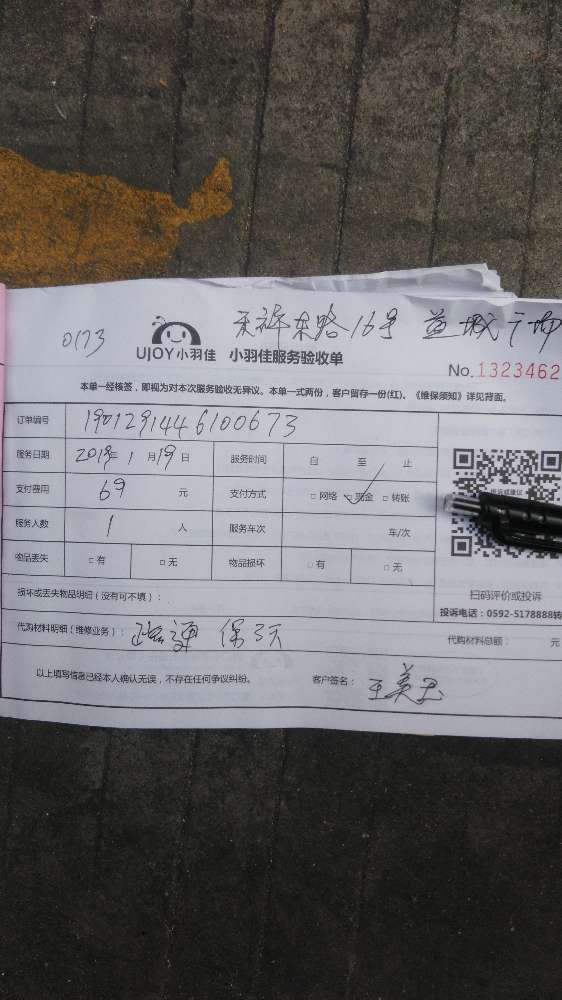 0173 UJOY小羽佳 小羽佳服务验收单 东路16号 益城广场
No.1323462
本单一经核签，即视为对本次服务验收无异议。本单一式两份，客户留存一份(红)、《维保须知》详见背面。
订单编号 1901291446100673
服务日期 2019年1月19日 服务时间 自 至 止
支付费用 69 元 支付方式 □网络 ✓现金 □转账
服务人数 1 人 服务车次 车/次
物品丢失 □有 □无 物品损坏 □有 □无
扫码评价或投诉
损坏或丢失物品明细（没有可不填）：
投诉电话：0592-5178888转
代购材料明细（维修业务）： 疏通 保3天 代购材料总额： 元
以上填写信息已经本人确认无误，不存在任何争议纠纷。 客户签名： 王美